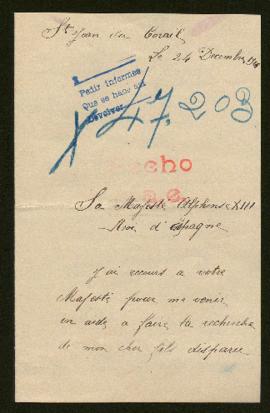 St Jean du Corail,
Le 24 Decembre
Pedir informes
Que se hace así
Devolver
47.203
echo
Sa Majesté Alphonse XIII
Roi d'Espagne
J'ai recours a votre
Majesté pour me venir
en aide a faire la recherche
de mon cher fils disparu